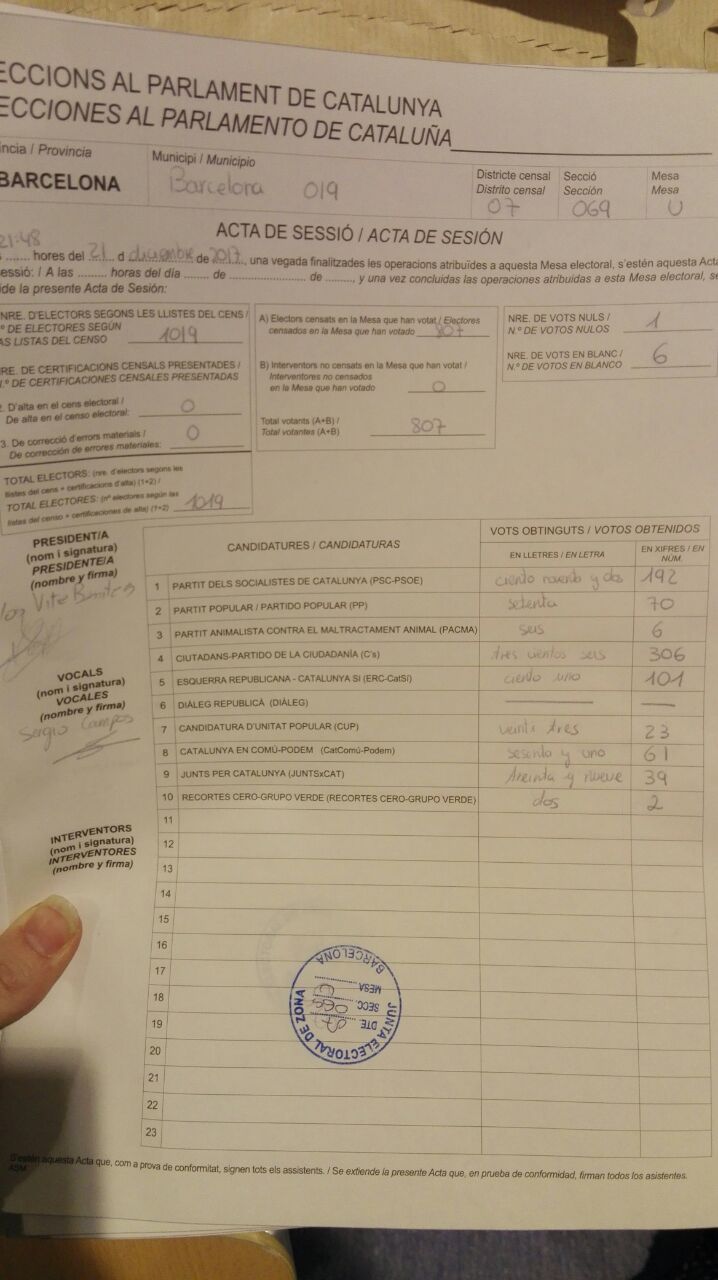 ECCIONS AL PARLAMENT DE CATALUNYA
ECCIONES AL PARLAMENTO DE CATALUÑA
ncia / Provincia
BARCELONA
Municipi / Municipio
Barcelona 019
Districte censal
Distrito censal
07
Secció
Sección
069
Mesa
Mesa
U
ACTA DE SESSIÓ / ACTA DE SESIÓN
21:48
....... hores del 21 d diciembre de 2017, una vegada finalitzades les operacions atribuïdes a aquesta Mesa electoral, s'estén aquesta Acta
essió: / A las ......... horas del día ....... de ........................... de ........, y una vez concluidas las operaciones atribuidas a esta Mesa electoral, se
ide la presente Acta de Sesión:
NRE. D'ELECTORS SEGONS LES LLISTES DEL CENS /
º DE ELECTORES SEGÚN
AS LISTAS DEL CENSO 1019
RE. DE CERTIFICACIONS CENSALS PRESENTADES /
º DE CERTIFICACIONES CENSALES PRESENTADAS
2. D'alta en el cens electoral /
De alta en el censo electoral: 0
3. De correcció d'errors materials /
De corrección de errores materiales: 0
TOTAL ELECTORS: (nre. d'electors segons les
llistes del cens + certificacions d'alta) (1+2) /
TOTAL ELECTORES: (nº electores según las
listas del censo + certificaciones de alta) (1+2) 1019
A) Electors censats en la Mesa que han votat / Electores
censados en la Mesa que han votado 807
B) Interventors no censats en la Mesa que han votat /
Interventores no censados
en la Mesa que han votado 0
Total votants (A+B) /
Total votantes (A+B) 807
NRE. DE VOTS NULS /
N.º DE VOTOS NULOS 1
NRE. DE VOTS EN BLANC /
N.º DE VOTOS EN BLANCO 6
PRESIDENT/A
(nom i signatura)
PRESIDENTE/A
(nombre y firma)
Vite Benites
VOCALS
(nom i signatura)
VOCALES
(nombre y firma)
Sergio Campos
INTERVENTORS
(nom i signatura)
INTERVENTORES
(nombre y firma)
CANDIDATURES / CANDIDATURAS
VOTS OBTINGUTS / VOTOS OBTENIDOS
EN LLETRES / EN LETRA
EN XIFRES / EN NÚM.
1 PARTIT DELS SOCIALISTES DE CATALUNYA (PSC-PSOE) ciento noventa y dos 192
2 PARTIT POPULAR / PARTIDO POPULAR (PP) setenta 70
3 PARTIT ANIMALISTA CONTRA EL MALTRACTAMENT ANIMAL (PACMA) seis 6
4 CIUTADANS-PARTIDO DE LA CIUDADANÍA (C's) tres cientos seis 306
5 ESQUERRA REPUBLICANA - CATALUNYA SI (ERC-CatSí) ciento uno 101
6 DIÀLEG REPUBLICÀ (DIÀLEG) — —
7 CANDIDATURA D'UNITAT POPULAR (CUP) veinti tres 23
8 CATALUNYA EN COMÚ-PODEM (CatComú-Podem) sesenta y uno 61
9 JUNTS PER CATALUNYA (JUNTSxCAT) treinta y nueve 39
10 RECORTES CERO-GRUPO VERDE (RECORTES CERO-GRUPO VERDE) dos 2
11
12
13
14
15
16
17
18
19
20
21
22
23
JUNTA ELECTORAL DE ZONA
BARCELONA
DTE. 07
SECC. 069
MESA U
S'estén aquesta Acta que, com a prova de conformitat, signen tots els assistents. / Se extiende la presente Acta que, en prueba de conformidad, firman todos los asistentes.
ASM